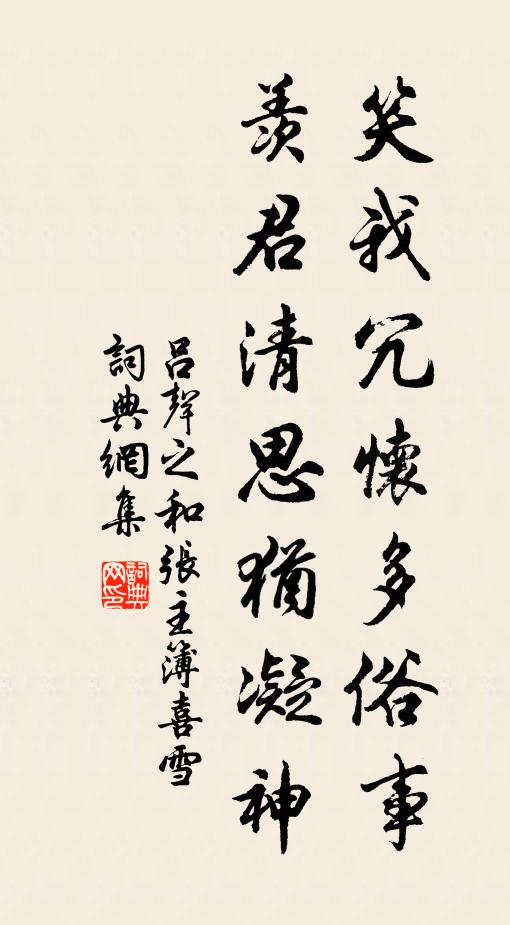 笑我冗懷多俗事
羨君清思猶凝神
呂聲之和張主簿喜雪
詞典網集
詞典
网印